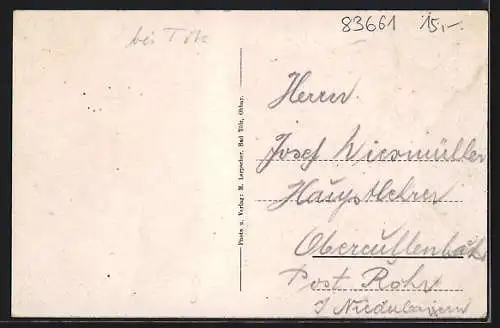 83661 15,-
bei Tölz
Photo u. Verlag: M. Lerpscher, Bad Tölz, Obbay.
Herrn
Josef Wiesmüller
Hauptlehrer
Post Rohr
Niederbayern